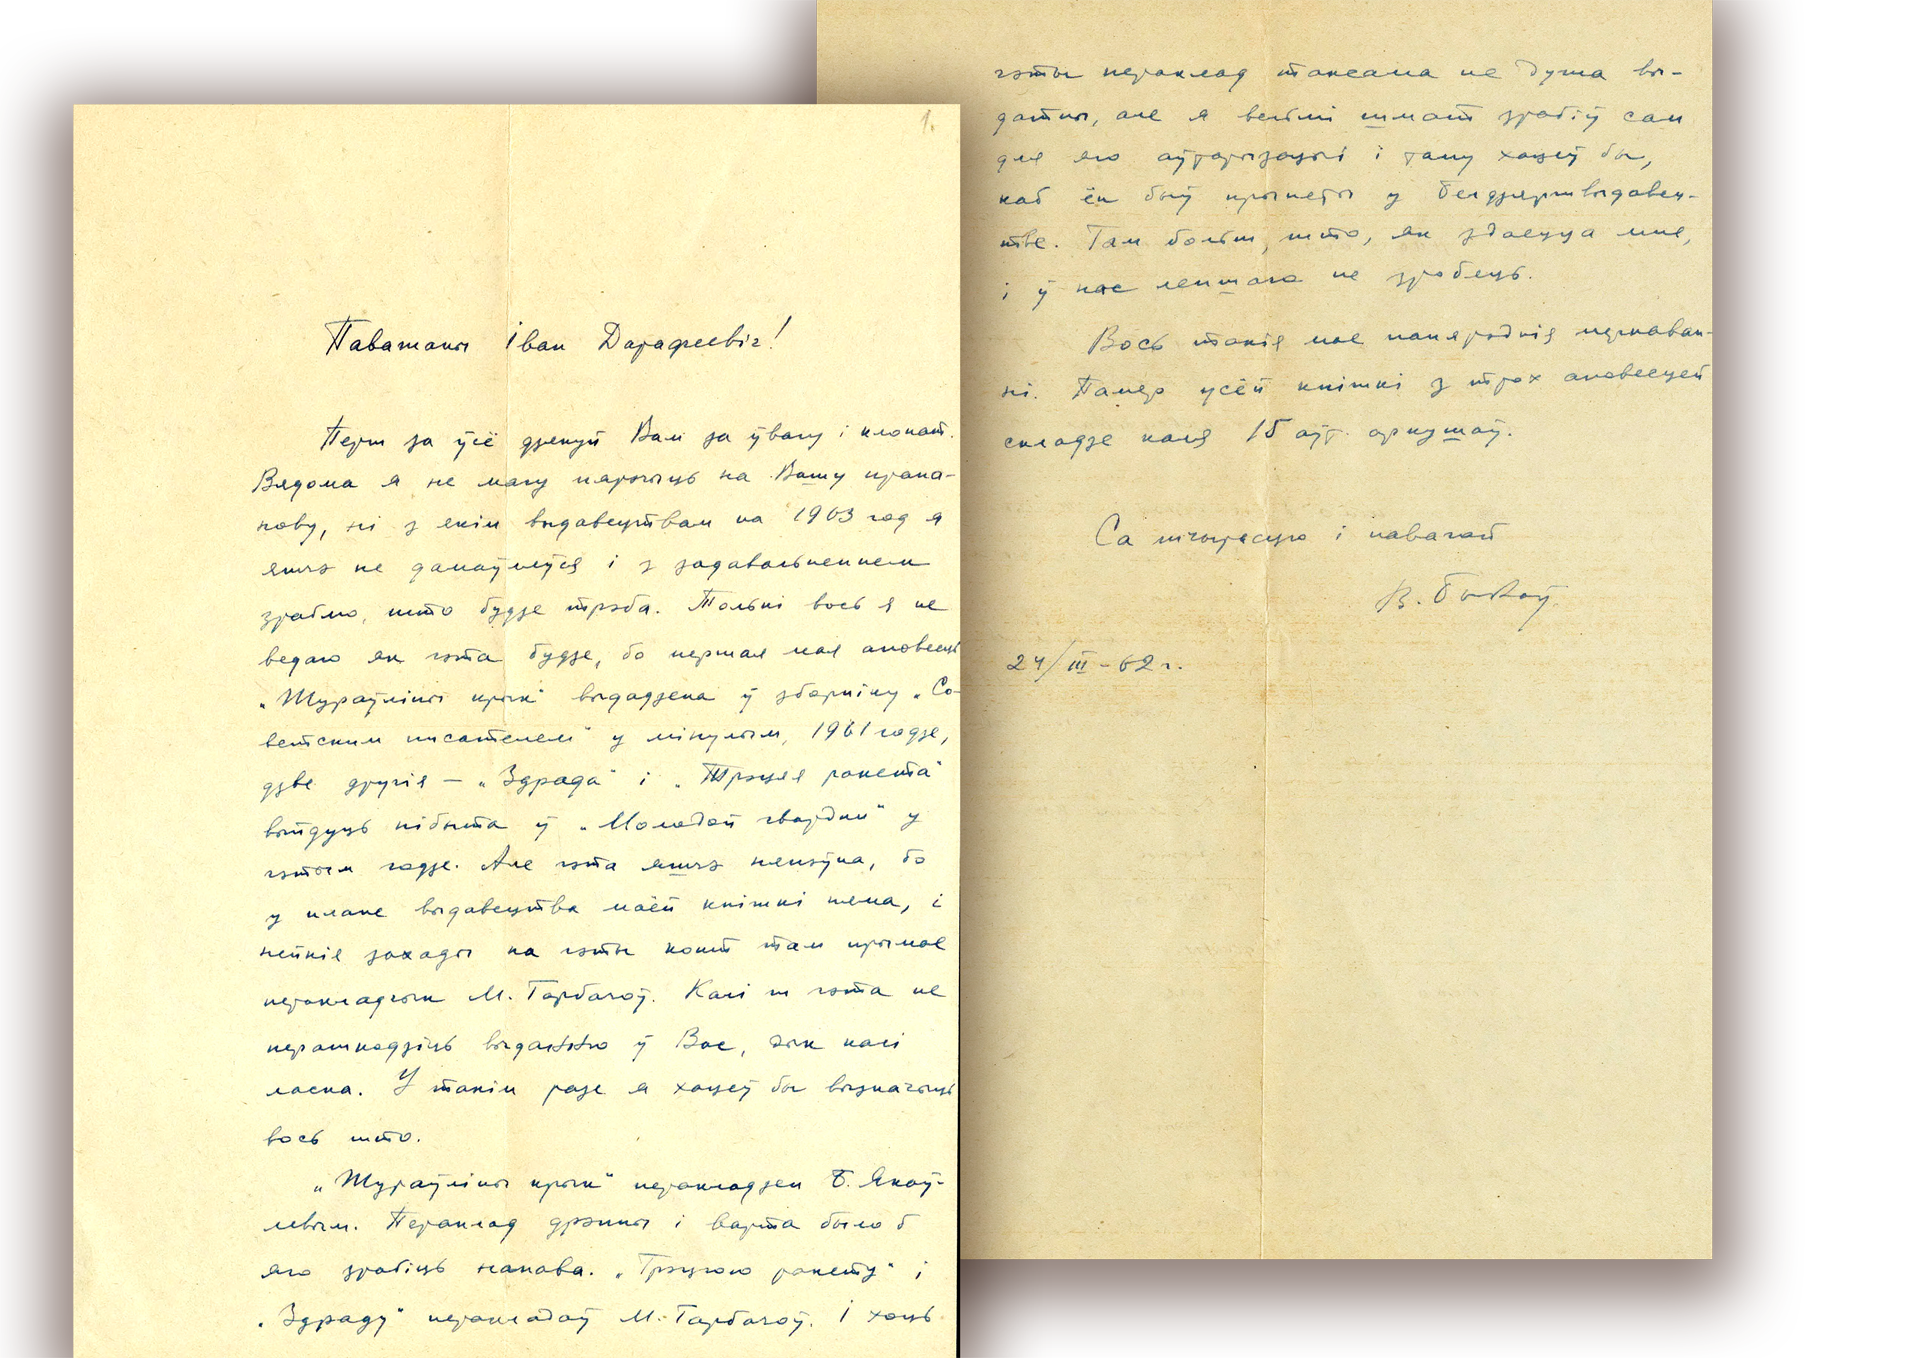 1.
Паважаны Іван Дарафеевіч!
Перш за ўсё дзякуй Вам за ўвагу і клопат.
Вядома я не магу пярэчыць на Вашу прапа-
нову, ні з якім выдавецтвам на 1963 год я
яшчэ не дамаўляўся і з задавальненнем
зраблю, што будзе трэба. Толькі вось я не
ведаю як гэта будзе, бо першая мая аповесць
„Жураўліны крык" выдадзена ў зборніку „Со-
ветским писателем" у мінулым, 1961 годзе,
дзве другія — „Здрада" і „Трэцяя ракета"
выйдуць нібыта ў „Молодой гвардии" у
гэтым годзе. Але гэта яшчэ няпэўна, бо
у плане выдавецтва маёй кніжкі няма, і
нейкія захады на гэты конт там прымае
перакладчык М. Гарбачоў. Калі ж гэта не
перашкодзіць выданню ў Вас, дык калі
ласка. У такім разе я хацеў бы вызначыць
вось што.
„Жураўліны крык" перакладзен Б. Якаў-
левым. Пераклад дрэнны і варта было б
яго зрабіць нанава. „Трэцюю ракету" і
„Здраду" перакладаў М. Гарбачоў. І хоць
гэты пераклад таксама не дужа вы-
датны, але я вельмі шмат зрабіў сам
для яго аўтарызацыі і таму хацеў бы,
каб ён быў прыняты у Белдзяржвыдавец-
тве. Там больш, што, як здаецца мне,
і ў нас лепшага не зробець.
Вось такія мае папярэднія меркаван-
ні. Памер усёй кніжкі з трох аповесцей
складзе каля 15 аўт. аркушаў.
Са шчырасцю і павагай
В. Быкаў.
24/III – 62 г.